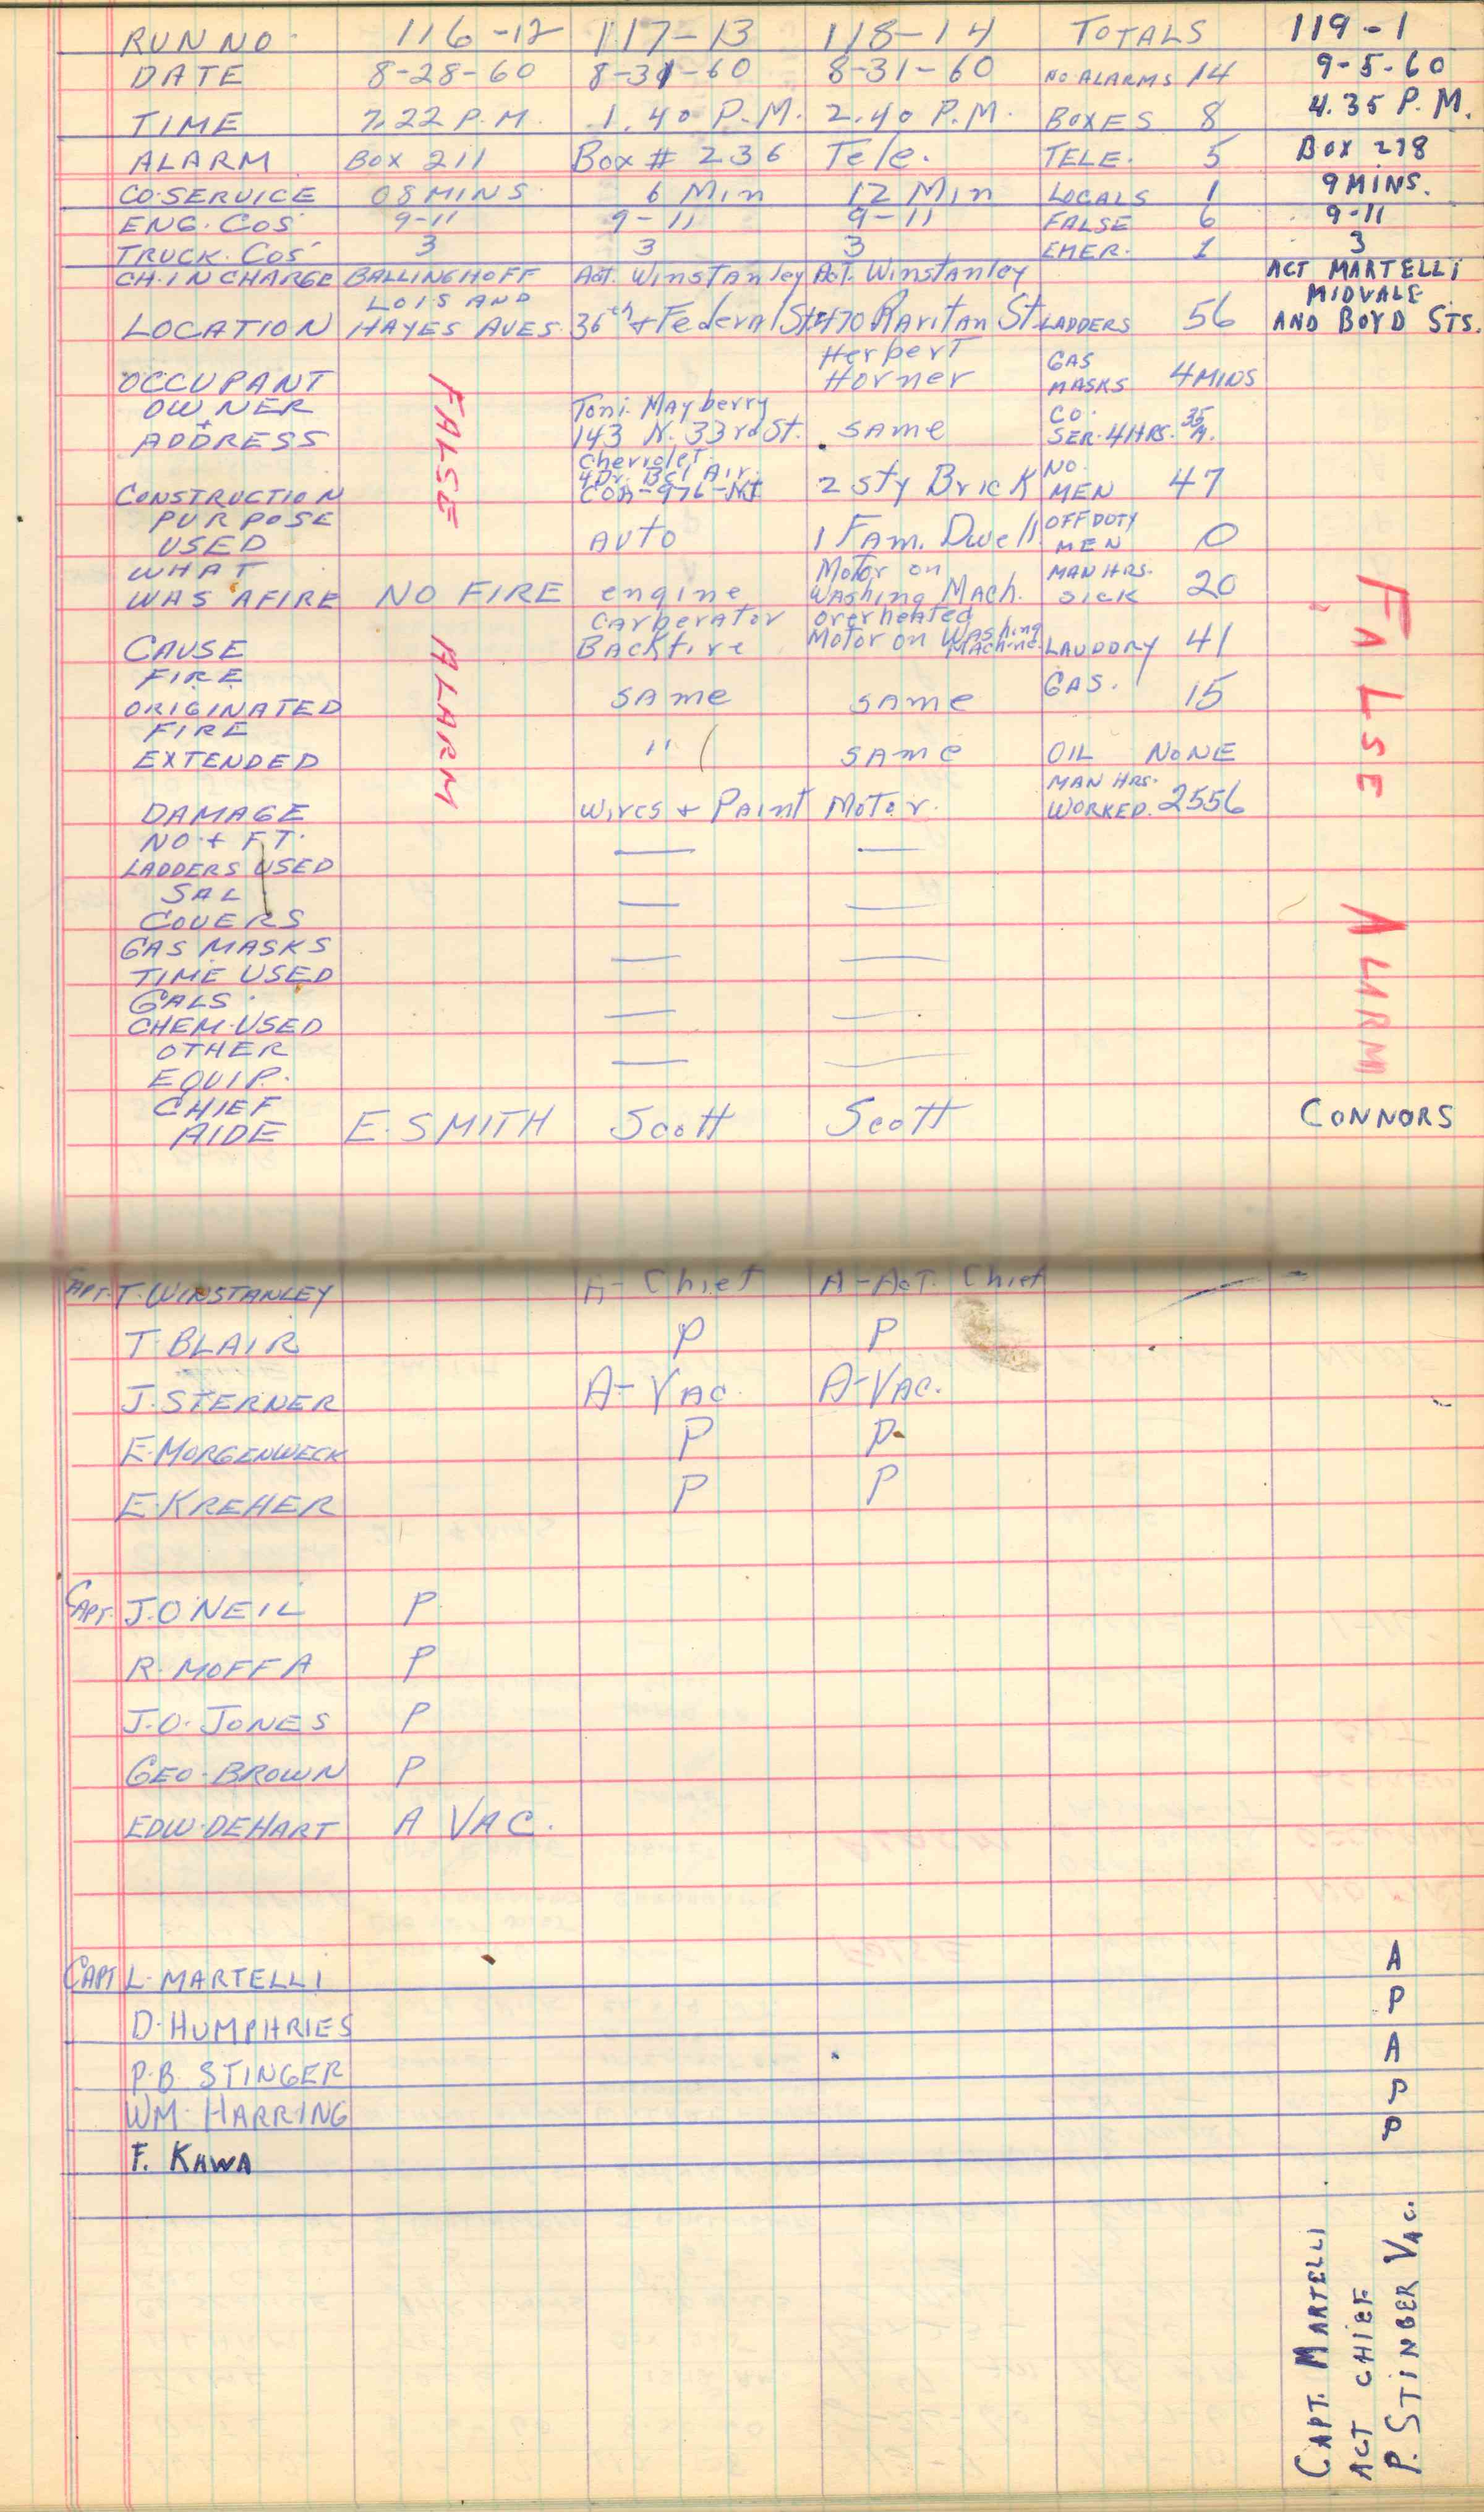 RUN NO. 116-12 117-13 118-14 TOTALS 119-1
DATE 8-28-60 8-31-60 8-31-60 NO. ALARMS 14 9-5-60
TIME 7.22 P.M. 1.40 P.M. 2.40 P.M. BOXES 8 4.35 P.M.
ALARM BOX 211 Box # 236 Tele. TELE. 5 BOX 218
CO. SERVICE 08 MINS. 6 Min 12 Min LOCALS 1 9 MINS.
ENG. COS 9-11 9-11 9-11 FALSE 6 9-11
TRUCK. COS 3 3 3 EMER. 1 3
CH. IN CHARGE BALLINGHOFF Act. Winstanley Act. Winstanley ACT MARTELLI
LOIS AND MIDVALE
LOCATION HAYES AVES. 36th + Federal St. 470 Raritan St. LADDERS 56 AND BOYD STS.
Herbert GAS
OCCUPANT Horner MASKS 4 MINS
OWNER Toni Mayberry CO.
+
ADDRESS 143 N. 33rd St. same SER. 4 HRS. 35 M.
Chevrolet
4 Dr. Bel Air NO.
CONSTRUCTION 2 sty Brick MEN 47
PURPOSE OFF DUTY
USED Auto 1 Fam. Dwell. MEN 0
WHAT Motor on MAN HRS.
WAS AFIRE NO FIRE engine Washing Mach. SICK 20
Carberator overheated
CAUSE Backfire Motor on Washing Machine LAUDDRY 41
FIRE GAS. 15
ORIGINATED same same
FIRE
EXTENDED " same OIL NONE
MAN HRS.
DAMAGE Wires + Paint Motor. WORKED. 2556
NO. + FT.
LADDERS USED — —
SAL
COVERS — —
GAS MASKS
TIME USED — —
GALS.
CHEM. USED — —
OTHER
EQUIP. — —
CHIEF
AIDE E. SMITH Scott Scott CONNORS
FALSE
ALARM
FALSE
ALARM
CAPT. T. WINSTANLEY A- Chief A-Act. Chief
T. BLAIR P P
J. STERNER A-Vac. A-Vac.
E. MORGENWECK P P
E. KREHER P P
CAPT. J. O'NEIL P
R. MOFFA P
J. O. JONES P
GEO. BROWN P
EDW. DEHART A VAC.
CAPT L. MARTELLI A
D. HUMPHRIES P
P.B. STINGER A
WM. HARRING P
F. KAWA P
CAPT. MARTELLI
ACT CHIEF
P. STINGER VAC.